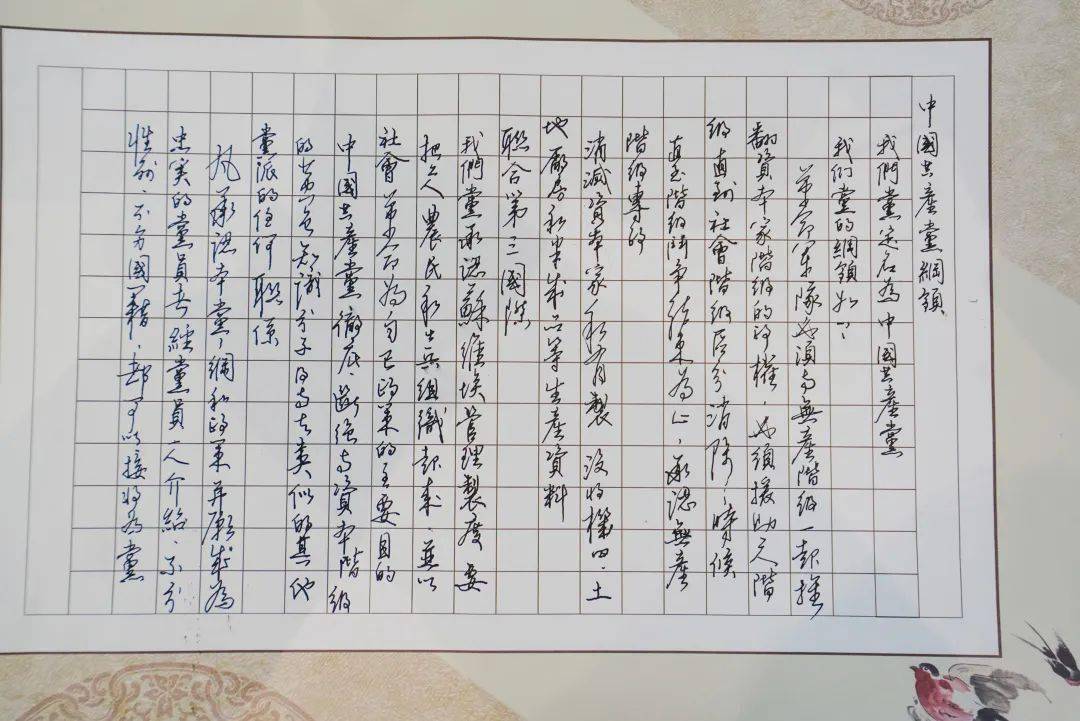 中國共產黨綱領
我們黨定名為中國共產黨
我们黨的綱領如下
革命軍隊必須与無產階級一起推
翻資本家階級的政權．必須援助工人階
級直到社會階級區分消除的時候
直至階級鬥爭結束為止．承認無產
階級專政
消滅資本家私有製 没收機四．土
地廠房和半成品等生產資料
聯合第三國際
我們黨承認蘇維埃管理製度 要
把工人農民和士兵組織起來．並以
社會革命為自己政策的主要目的
中國共產黨徹底．斷絕与資本階級
的黄色知識分子及与其類似的其他
黨派的任何聯係
凡承認本黨綱和政策并願成為
忠实的黨員者經黨員一人介紹．不分
性别．不分國籍．都可以接收為黨